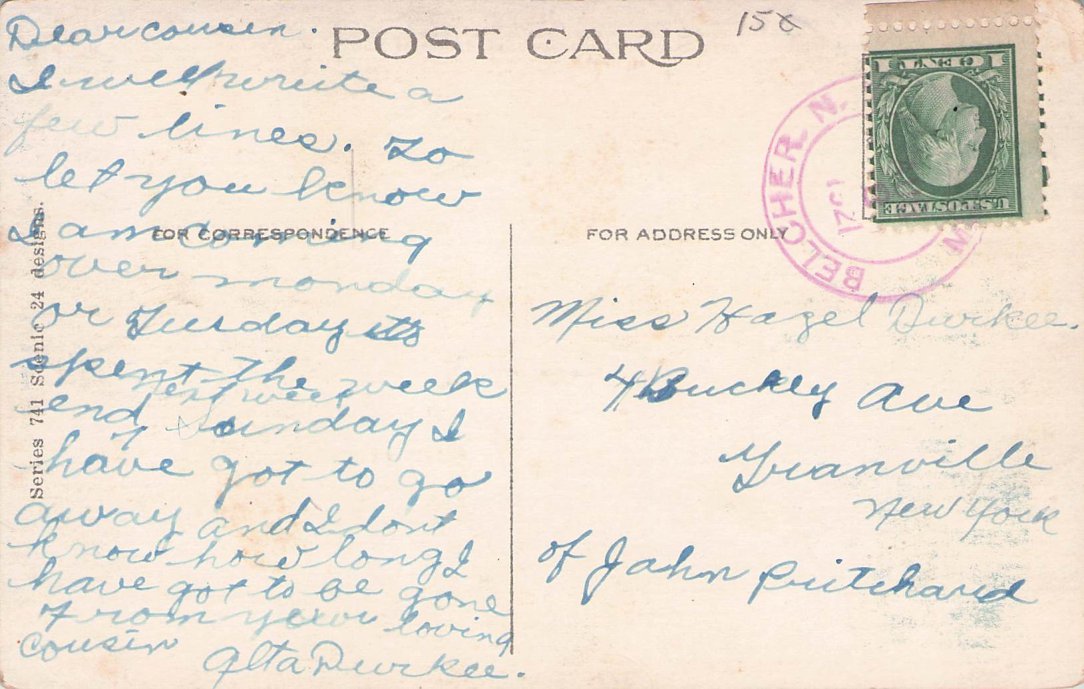 Dear cousin.
I will write a
few lines. to
let you know
I am coming
over monday
or Tuesday
spent the week
next week
end Sunday I
have got to go
away and I dont
know how long I
have got to be gone
From your loving
cousin Alta Durkee.
POST CARD
15¢
FOR CORRESPONDENCE
FOR ADDRESS ONLY
Series 741 Scenic 24 designs.
BELCHER N.
1921
U.S. POSTAGE
1 CENT 1
Miss Hazel Durkee.
4 Buckley Ave
Granville
New York
of John Pritchard